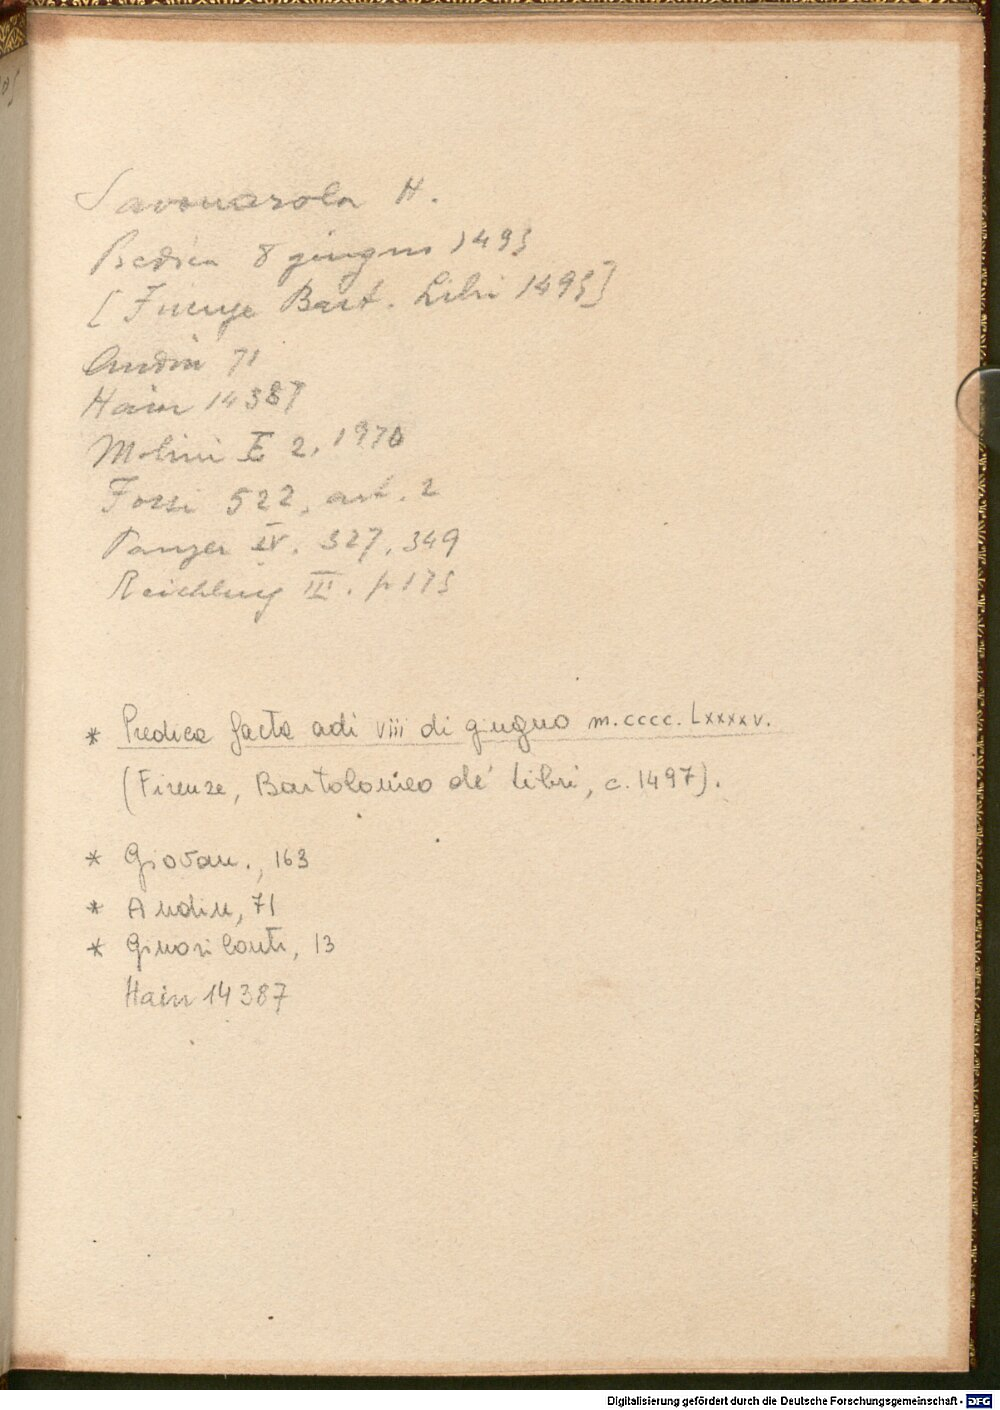 Savonarola H.
Predica 8 giugno 1495
[Firenze Bart. Libri 1495]
Audin 71
Hain 14387
Molini E 2, 1970
Fossi 522, art. 2
Panzer IV. 327, 349
Reichling III. p 175
* Predica facta adi viii di giugno m.cccc.Lxxxxv.
(Firenze, Bartolomeo de' Libri, c. 1497).
* Giovan., 163
* Audin, 71
* Ginori Conti, 13
Hain 14387
Digitalisierung gefördert durch die Deutsche Forschungsgemeinschaft - DFG